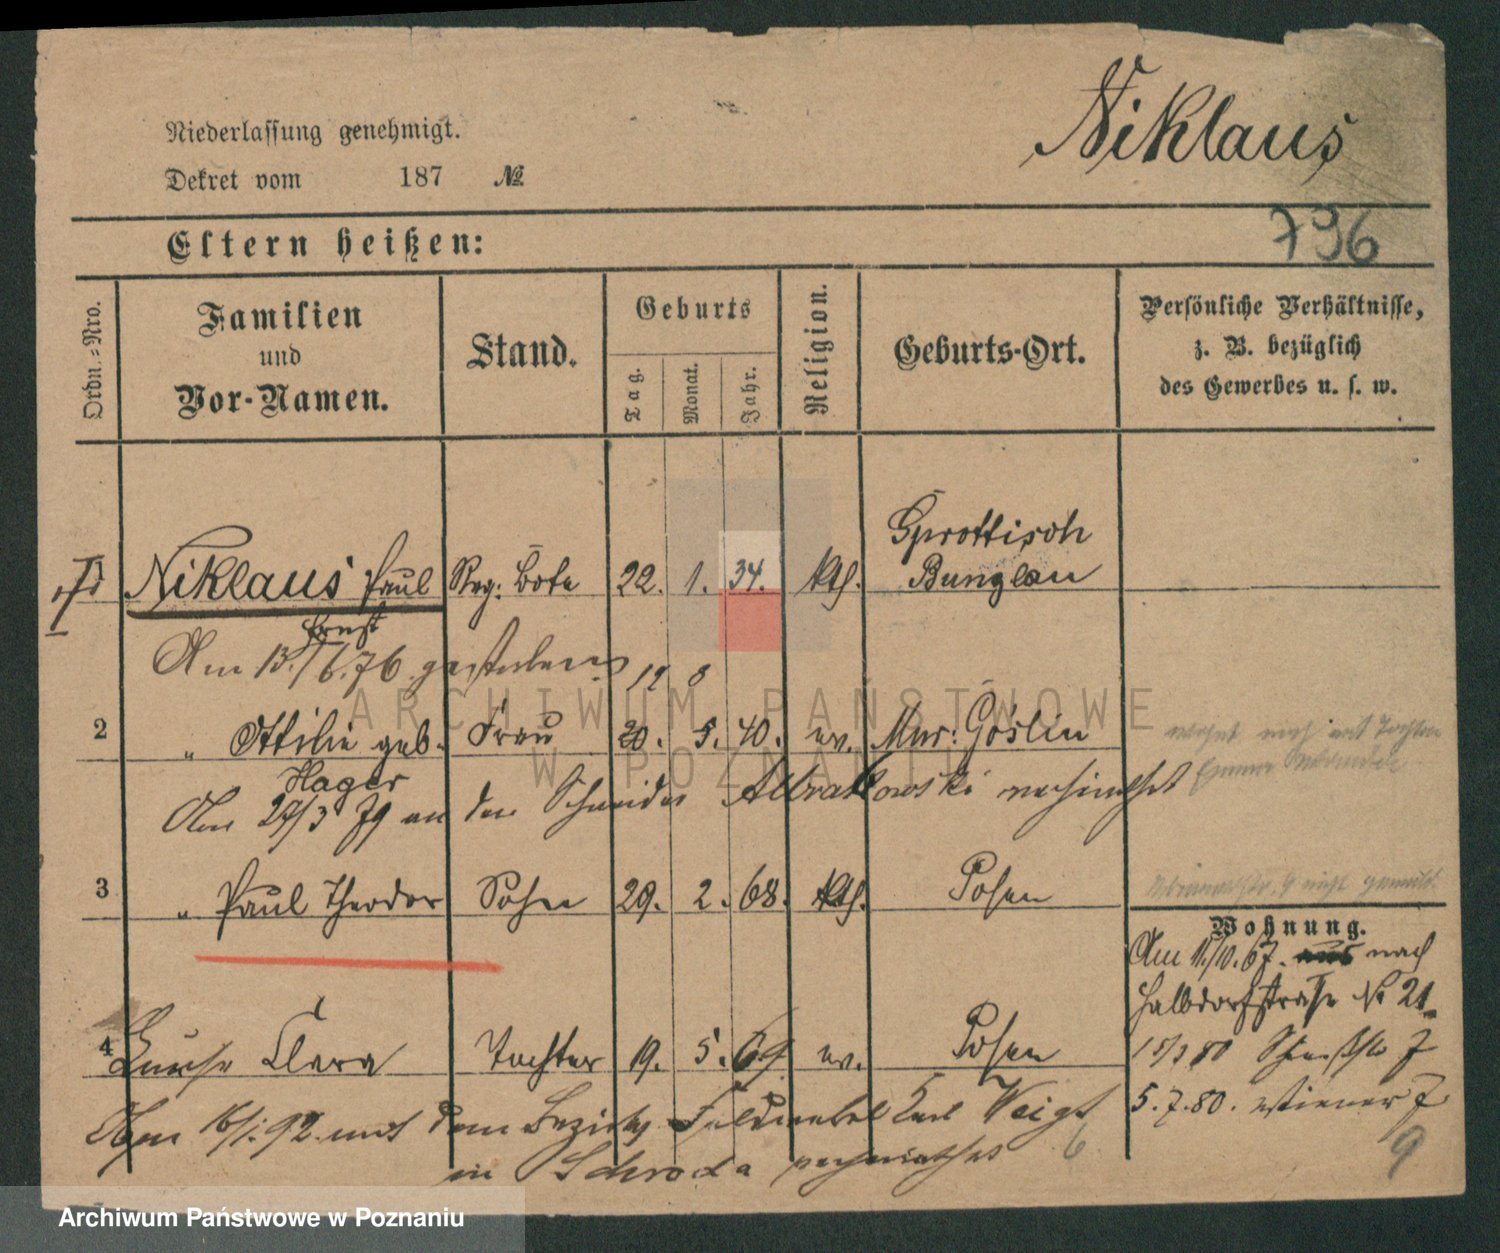 Niklaus
Niederlassung genehmigt.
Dekret vom 187 №
796
Eltern heißen:
Ordn.=Nro.
Familien
und
Vor-Namen.
Stand.
Geburts
Tag.
Monat.
Jahr.
Religion.
Geburts-Ort.
Persönliche Verhältnisse,
z. B. bezüglich
des Gewerbes u. s. w.
1 Niklaus Paul Reg: Bote 22. 1. 34. kth. Sprottisch
Bunzlau
Ernst
Am 13./6.76 gestorben
19 8
2 " Ottilie geb. Frau 20. 5. 40. ev. Mur: Goslin
Hager
Am 27/3 79 an den Schneider verheirathet
3 " Paul Theodor Sohn 29. 2. 68. kth. Posen
Wohnung.
Am 11./10.67. nach
Halbdorfstraße № 21.
4 Clara Tochter 19. 5. 69 ev. Posen
5.7.80. Wiener 7
Am 16/1.92 mit dem Bezirks Feldwebel Karl Weigt
in Schroda verheirathet 6
9
ARCHIWUM PAŃSTWOWE
W POZNANIU
Archiwum Państwowe w Poznaniu